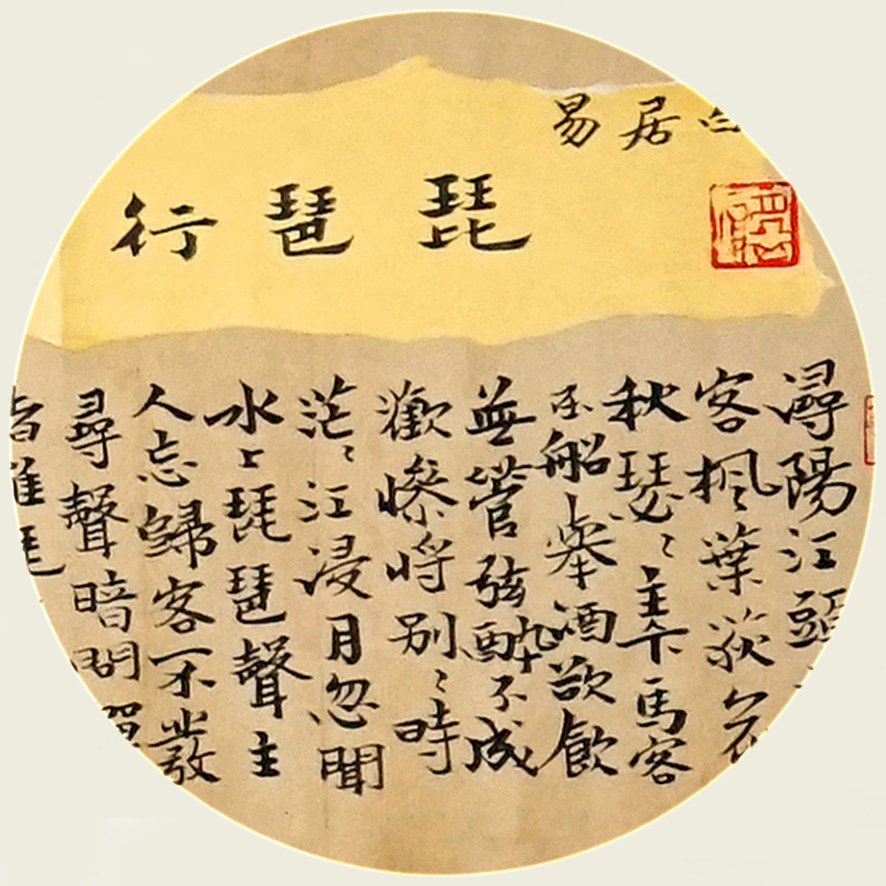 白居易
琵琶行
潯陽江頭
客楓葉荻花
秋瑟〻主人下馬客
在船舉酒欲飲
無管弦醉不成
歡慘將別〻時
茫〻江浸月忽聞
水上琵琶聲主
人忘歸客不發
尋聲暗問彈
者誰琵